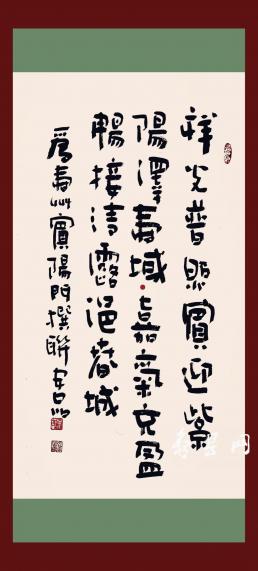 祥光普照賓迎紫
陽澤壽域·嘉氣充盈
暢接清露浥春城
爲壽州賓陽門撰聯